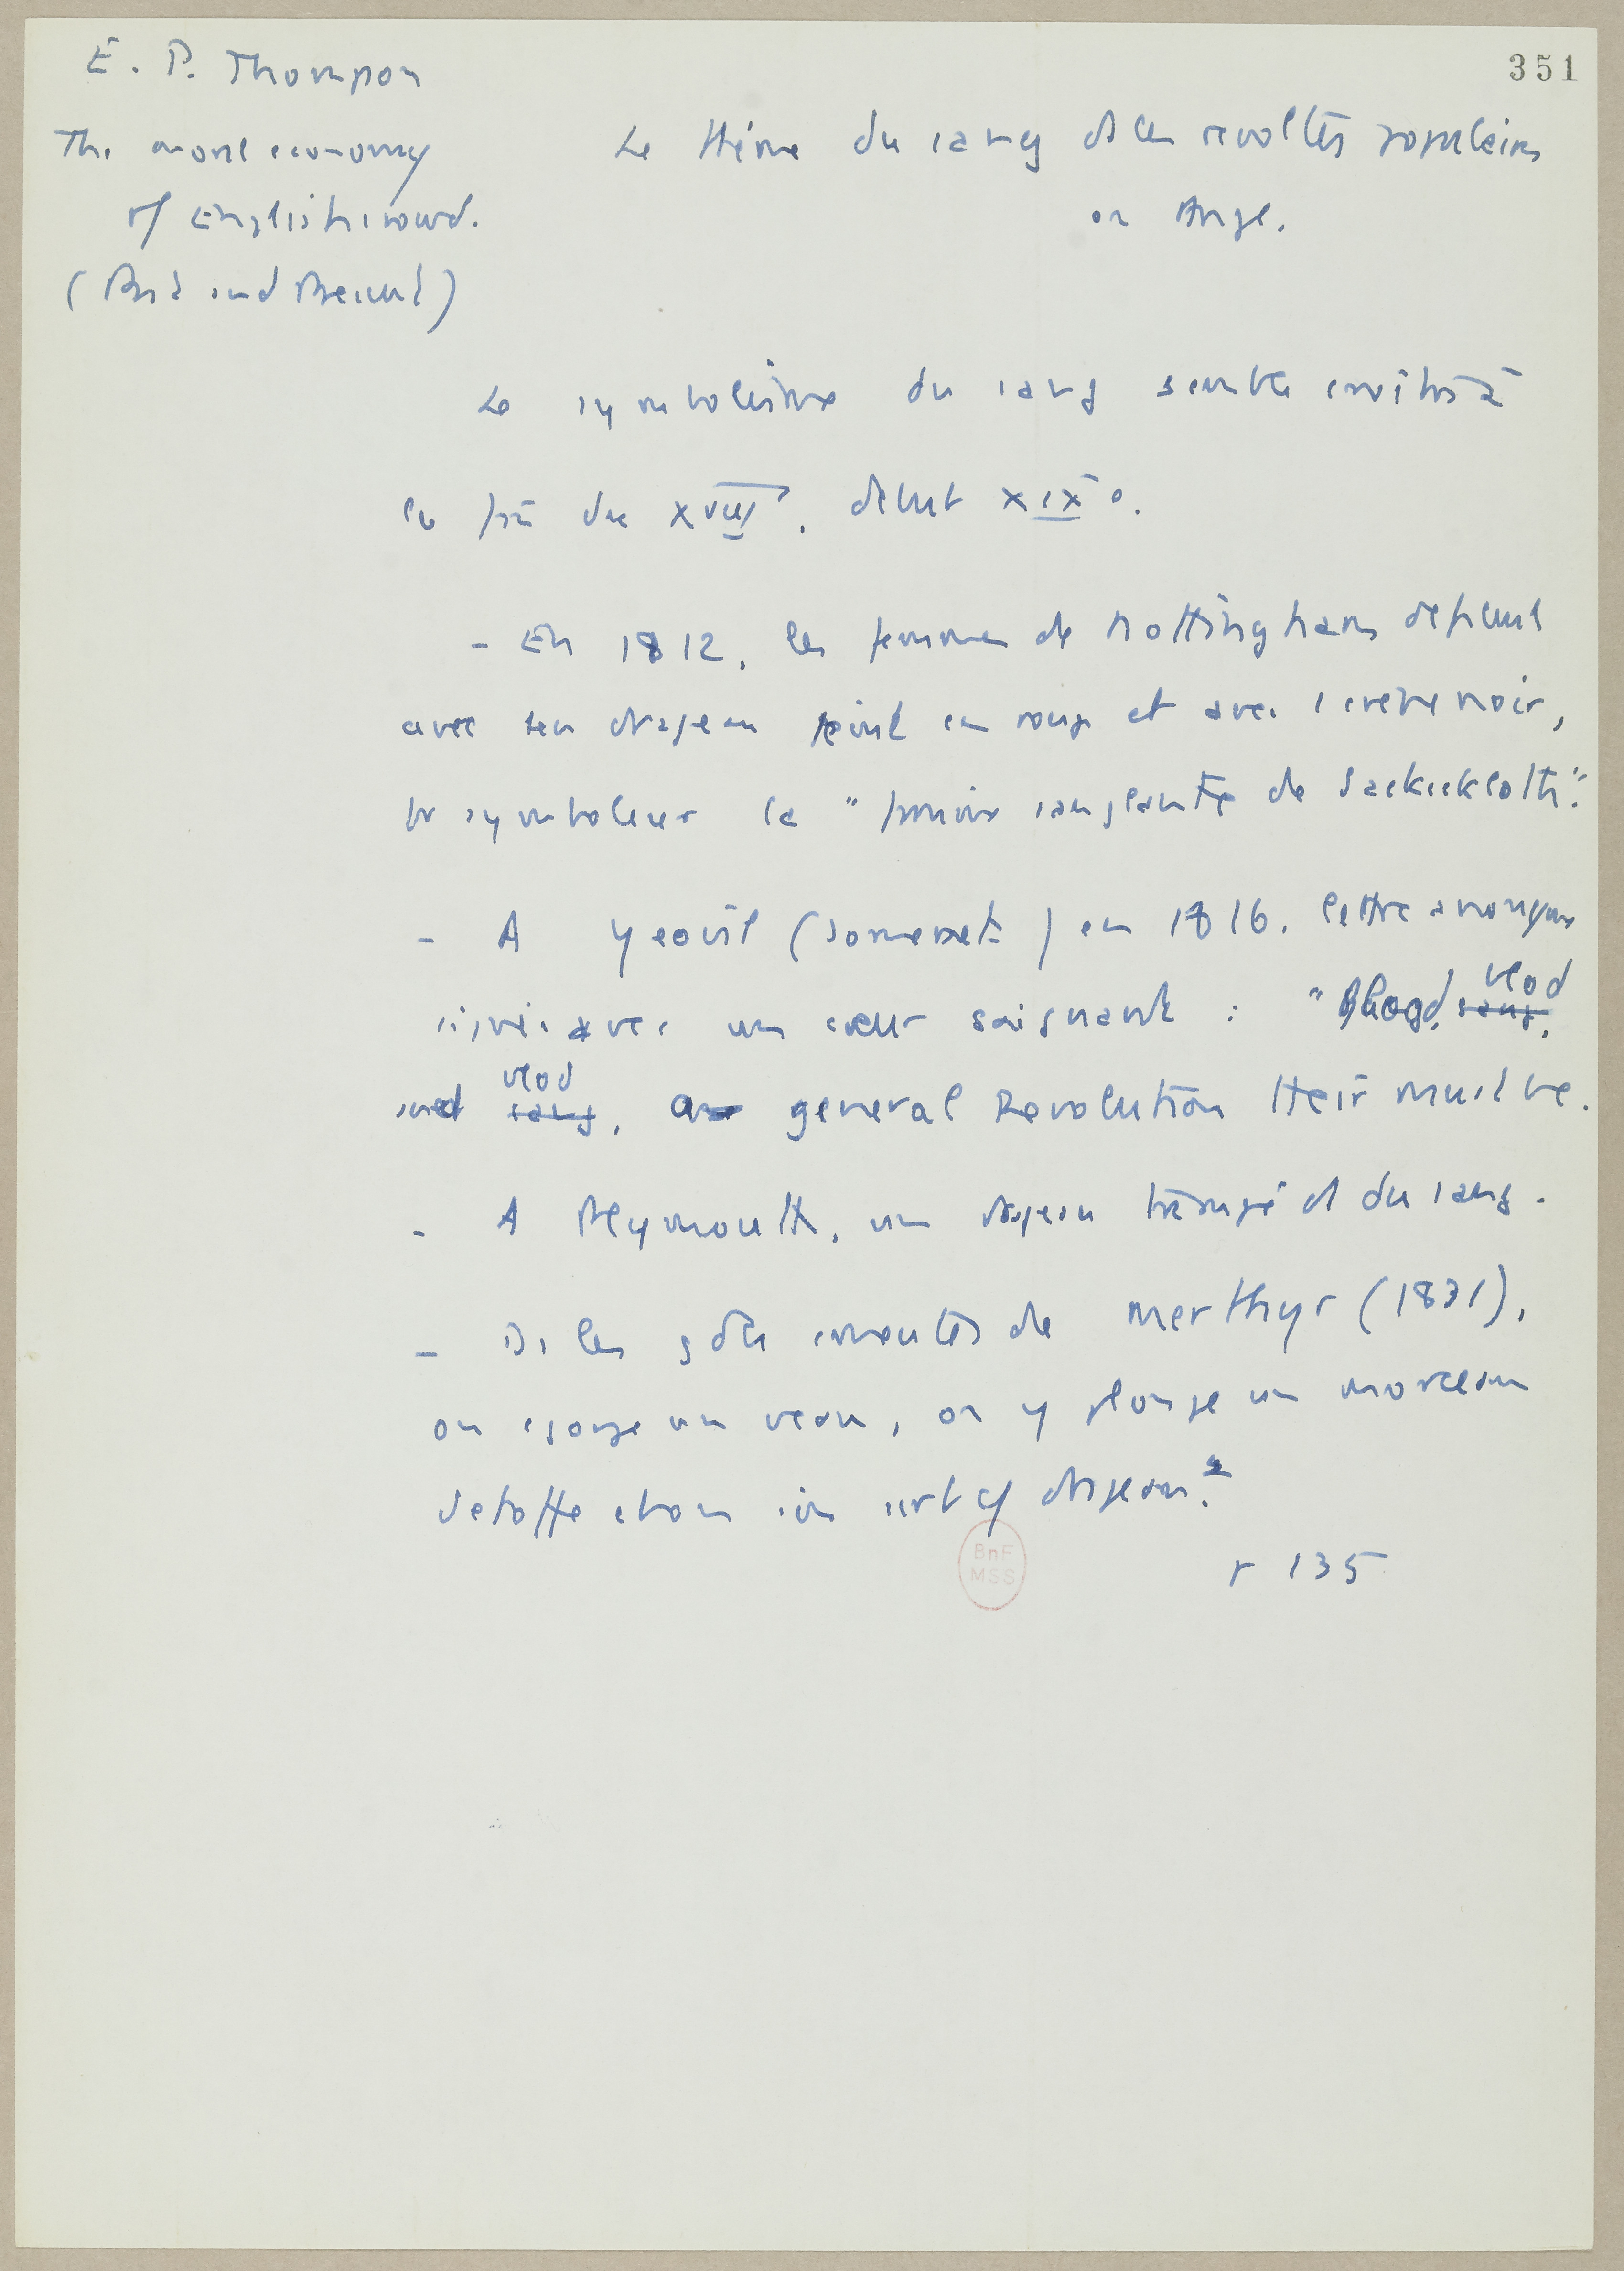 351
E. P. Thompson
The moral economy
of English crowd.
(Past and Present)
Le thème du sang ds les révoltes populaires
en Angl.
Le symbolisme du sang semble croître à
la fin du XVIII°, début XIX°.
- En 1812, les femmes de Nottingham défilent
avec un drapeau peint en rouge et avec 1 crêpe noir,
pr symboliser la " famine sanglante de Sackcloth".
- A Yeovil (Somerset) en 1816. lettre anonyme
signée avec un cœur saignant : " Blood, blod
and blod, a general Revolution their must be.
- A Plymouth, un drapeau trempé ds du sang.
- Ds les gdes émeutes de Merthyr (1831),
on égorge un veau, on y plonge un morceau
d'etoffe et on s'en sert cf drapeau.
p 135
BnF
MSS